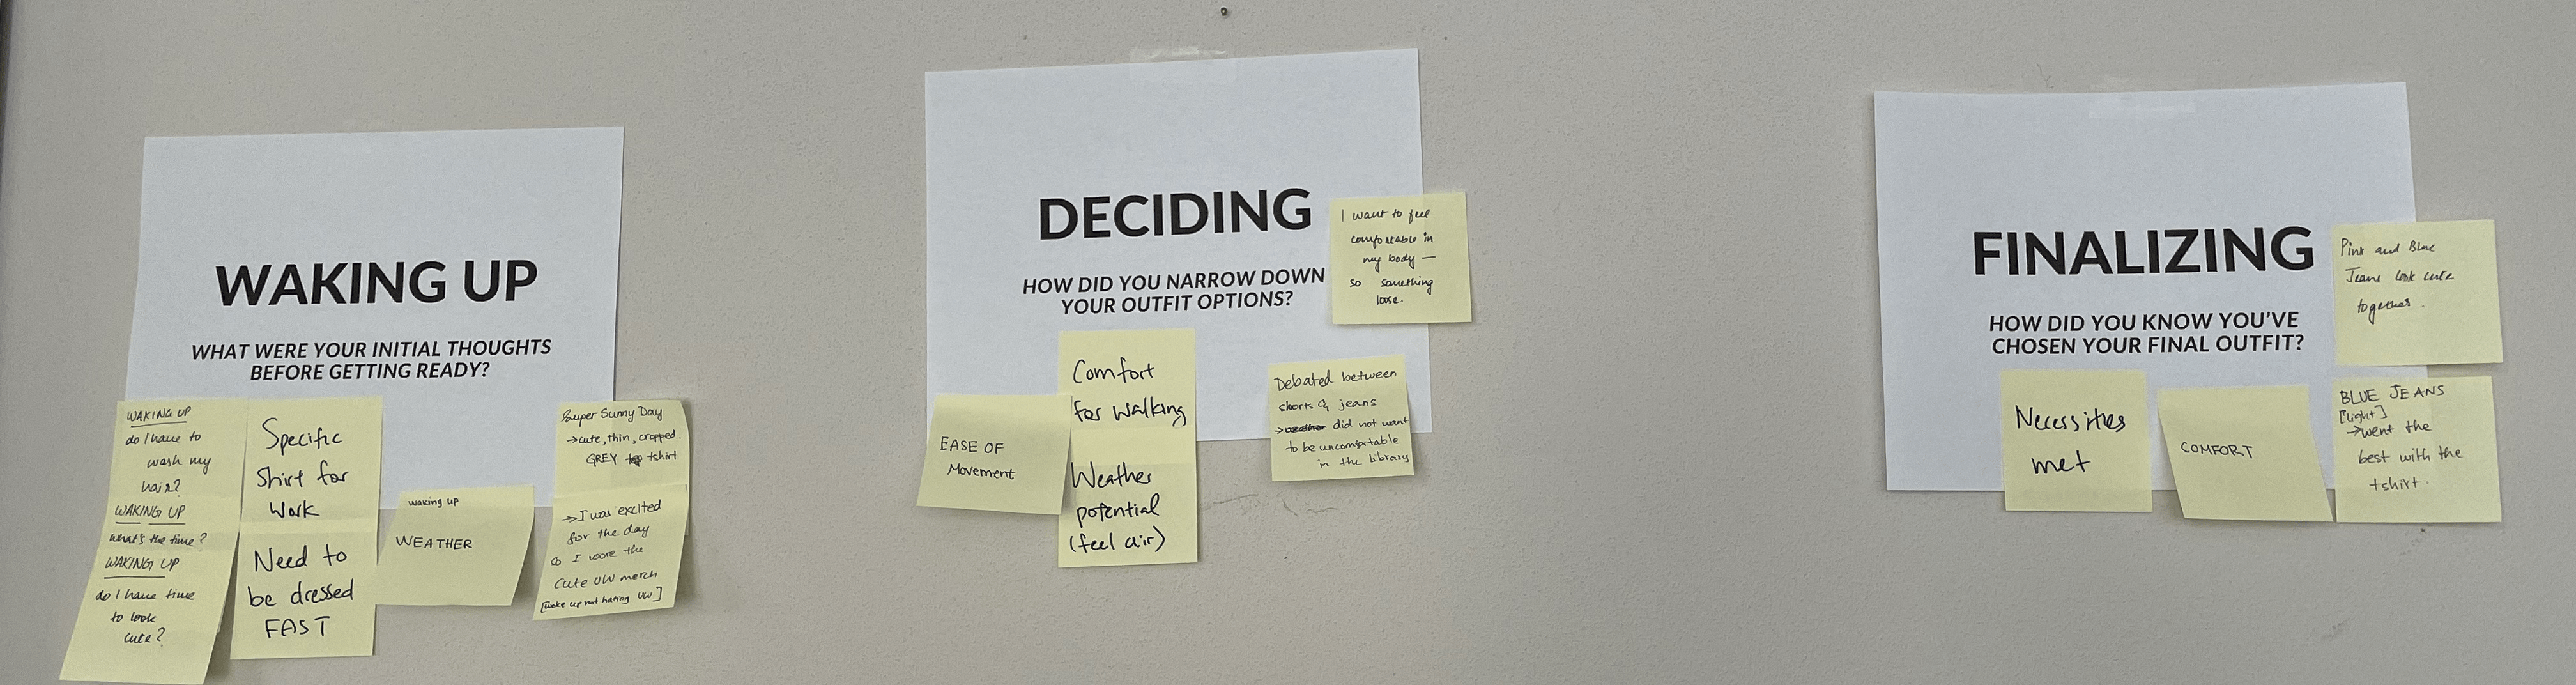 WAKING UP
WHAT WERE YOUR INITIAL THOUGHTS
BEFORE GETTING READY?
WAKING UP
do I have to
wash my
hair?
WAKING UP
what's the time?
WAKING UP
do I have time
to look
cute?
Specific
Shirt for
Work
Need to
be dressed
FAST
waking up
WEATHER
Super Sunny Day
→cute, thin, cropped
GREY tshirt
→I was excited
for the day
so I wore the
cute UW merch
[woke up not hating UW]
DECIDING
HOW DID YOU NARROW DOWN
YOUR OUTFIT OPTIONS?
I want to feel
comfortable in
my body —
so something
loose.
EASE OF
Movement
Comfort
for walking
Weather
potential
(feel air)
Debated between
shorts & jeans
→ did not want
to be uncomfortable
in the library
FINALIZING
HOW DID YOU KNOW YOU'VE
CHOSEN YOUR FINAL OUTFIT?
Pink and Blue
Jeans look cute
together.
Necessities
met
COMFORT
BLUE JEANS
[light]
→went the
best with the
tshirt.